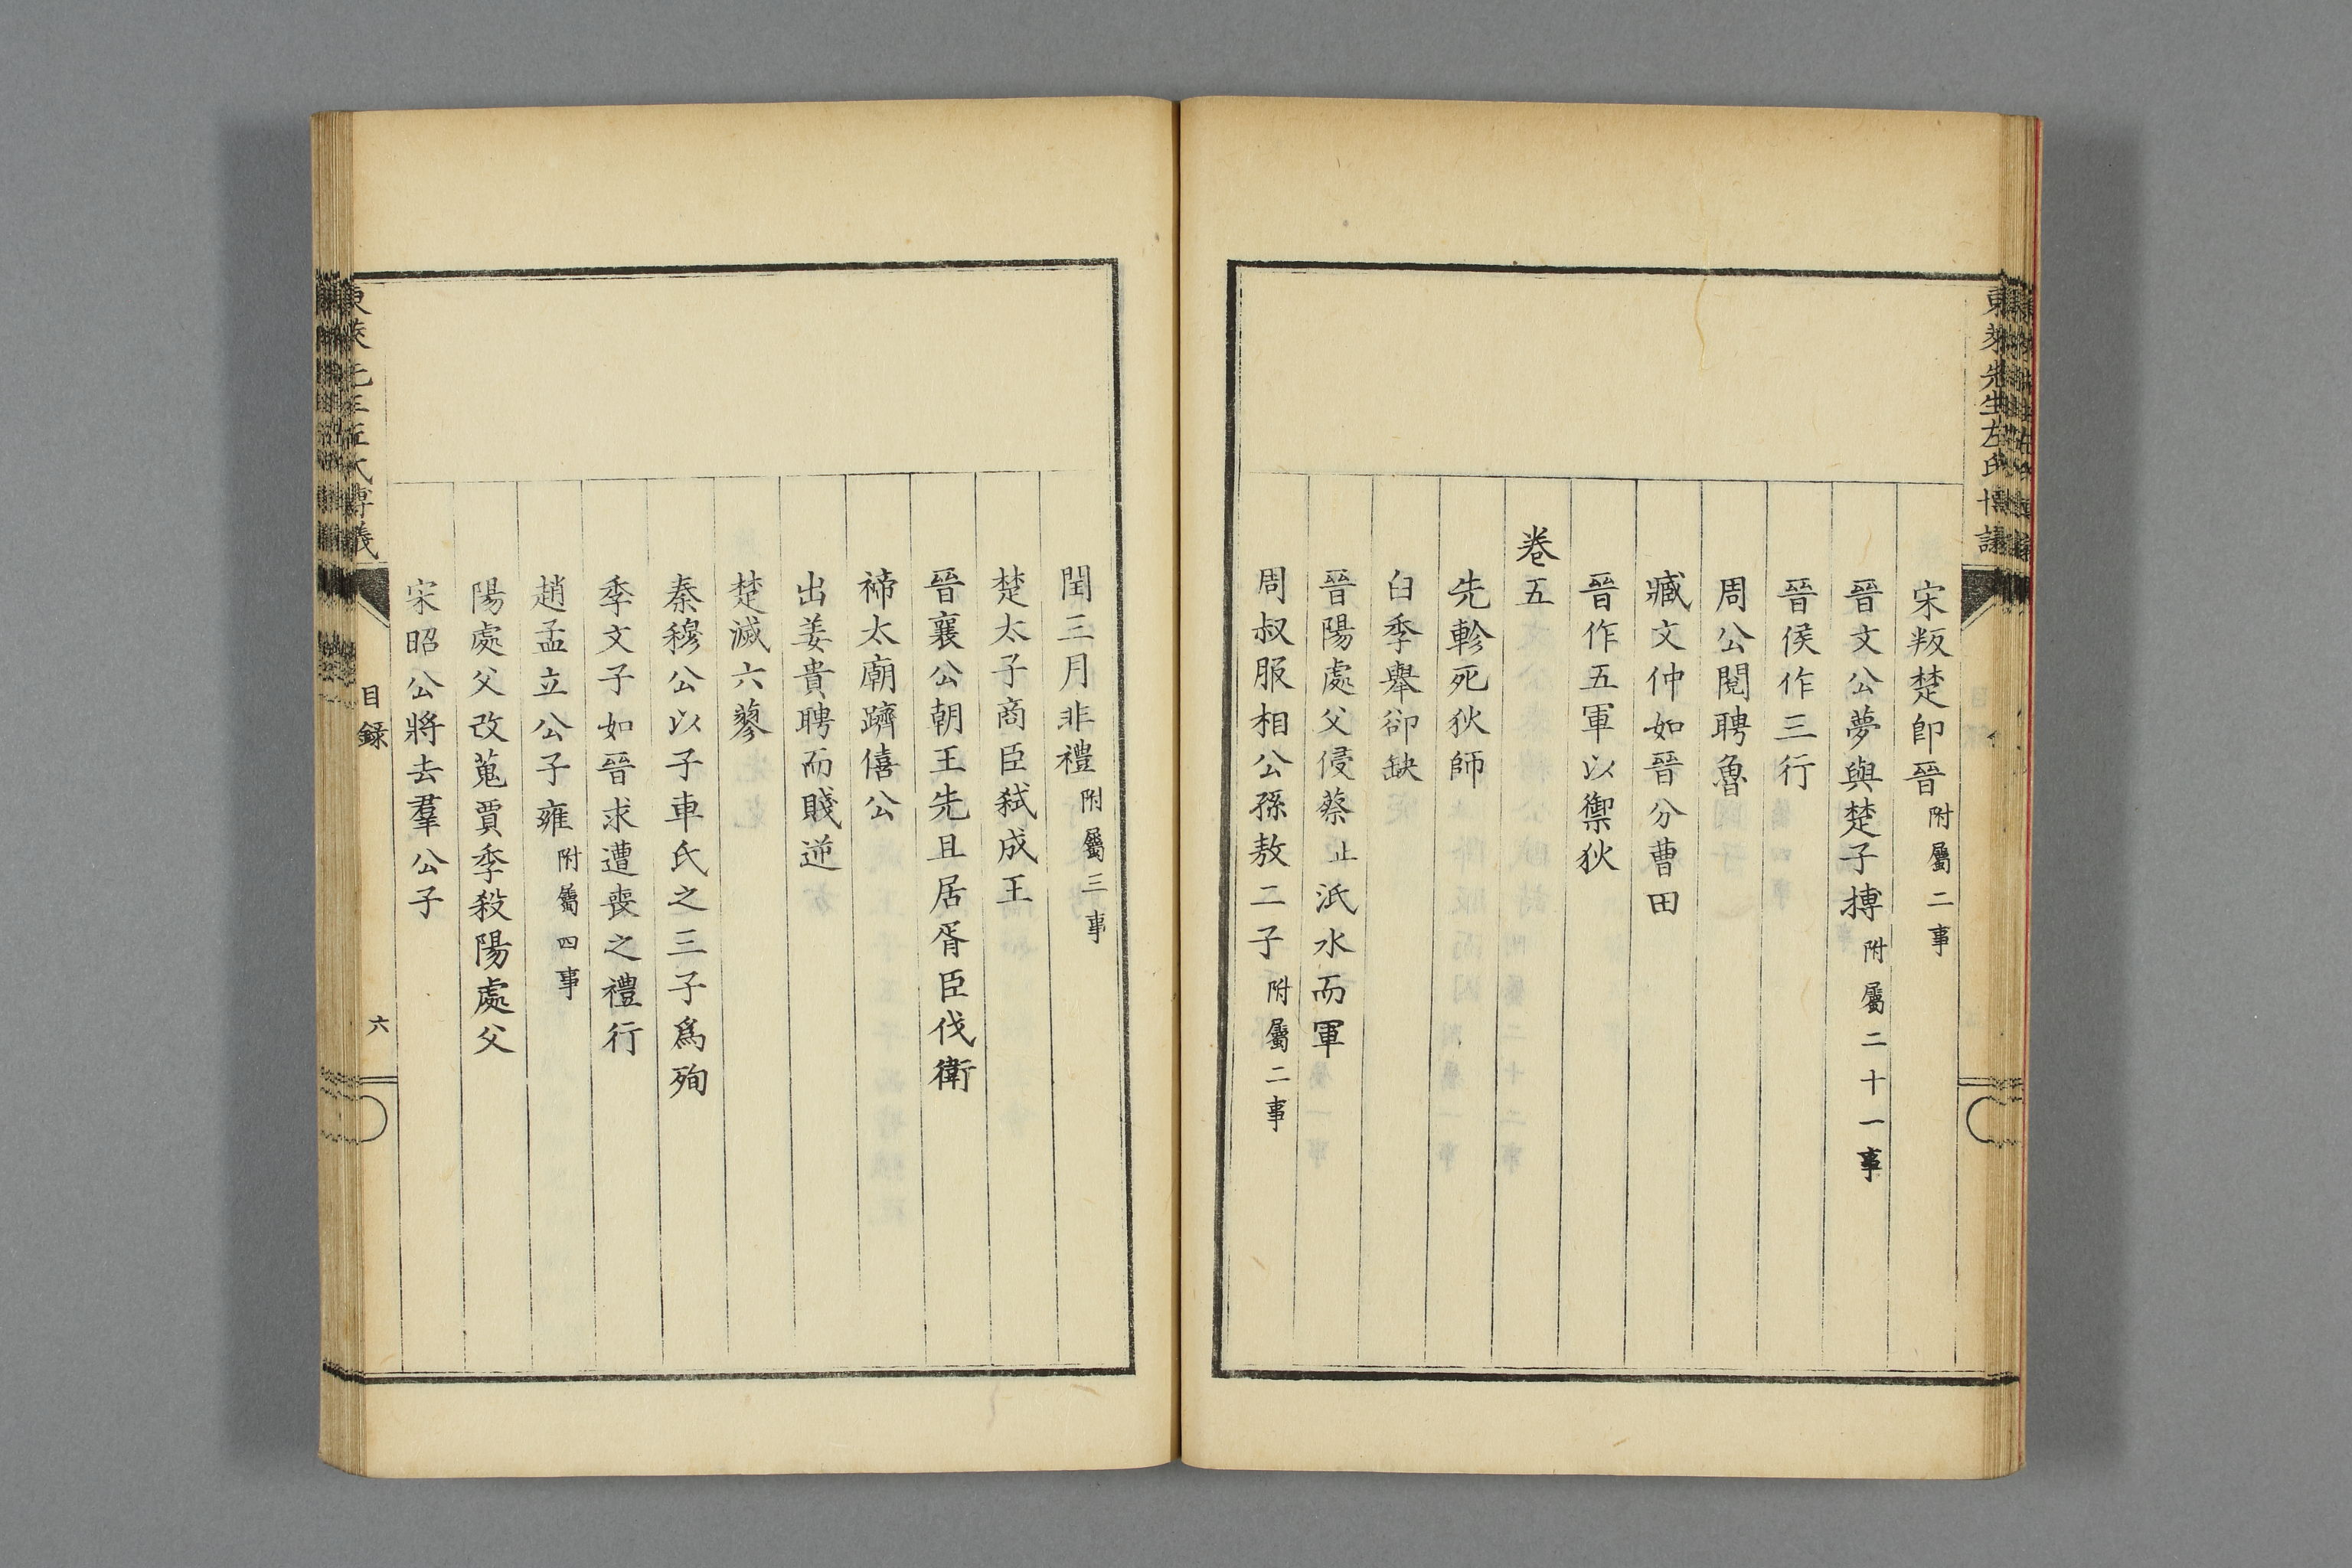 東萊先生左氏博議
宋叛楚卽晉附屬二事
晉文公夢與楚子搏附屬二十一事
晉侯作三行
周公閱聘魯
臧文仲如晉分曹田
晉作五軍以禦狄
卷五
先軫死狄師
臼季舉郤缺
晉陽處父侵蔡止泜水而軍
周叔服相公孫敖二子附屬二事
閏三月非禮附屬三事
楚太子商臣弒成王
晉襄公朝王先且居胥臣伐衛
禘太廟躋僖公
出姜貴聘而賤逆
楚滅六蓼
秦穆公以子車氏之三子爲殉
季文子如晉求遭喪之禮行
趙孟立公子雍附屬四事
陽處父改蒐賈季殺陽處父
宋昭公將去羣公子
東萊先生左氏博議
目錄
六